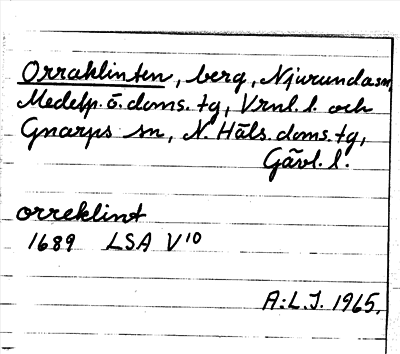 Orraklinten, berg, Njurunda sn,
Medelp. ö. doms. tg, Vrnl. l. och
Gnarps sn, N. Häls. doms. tg,
Gävl. l.
orreklint
1689 LSA V10
A:L.J. 1965.